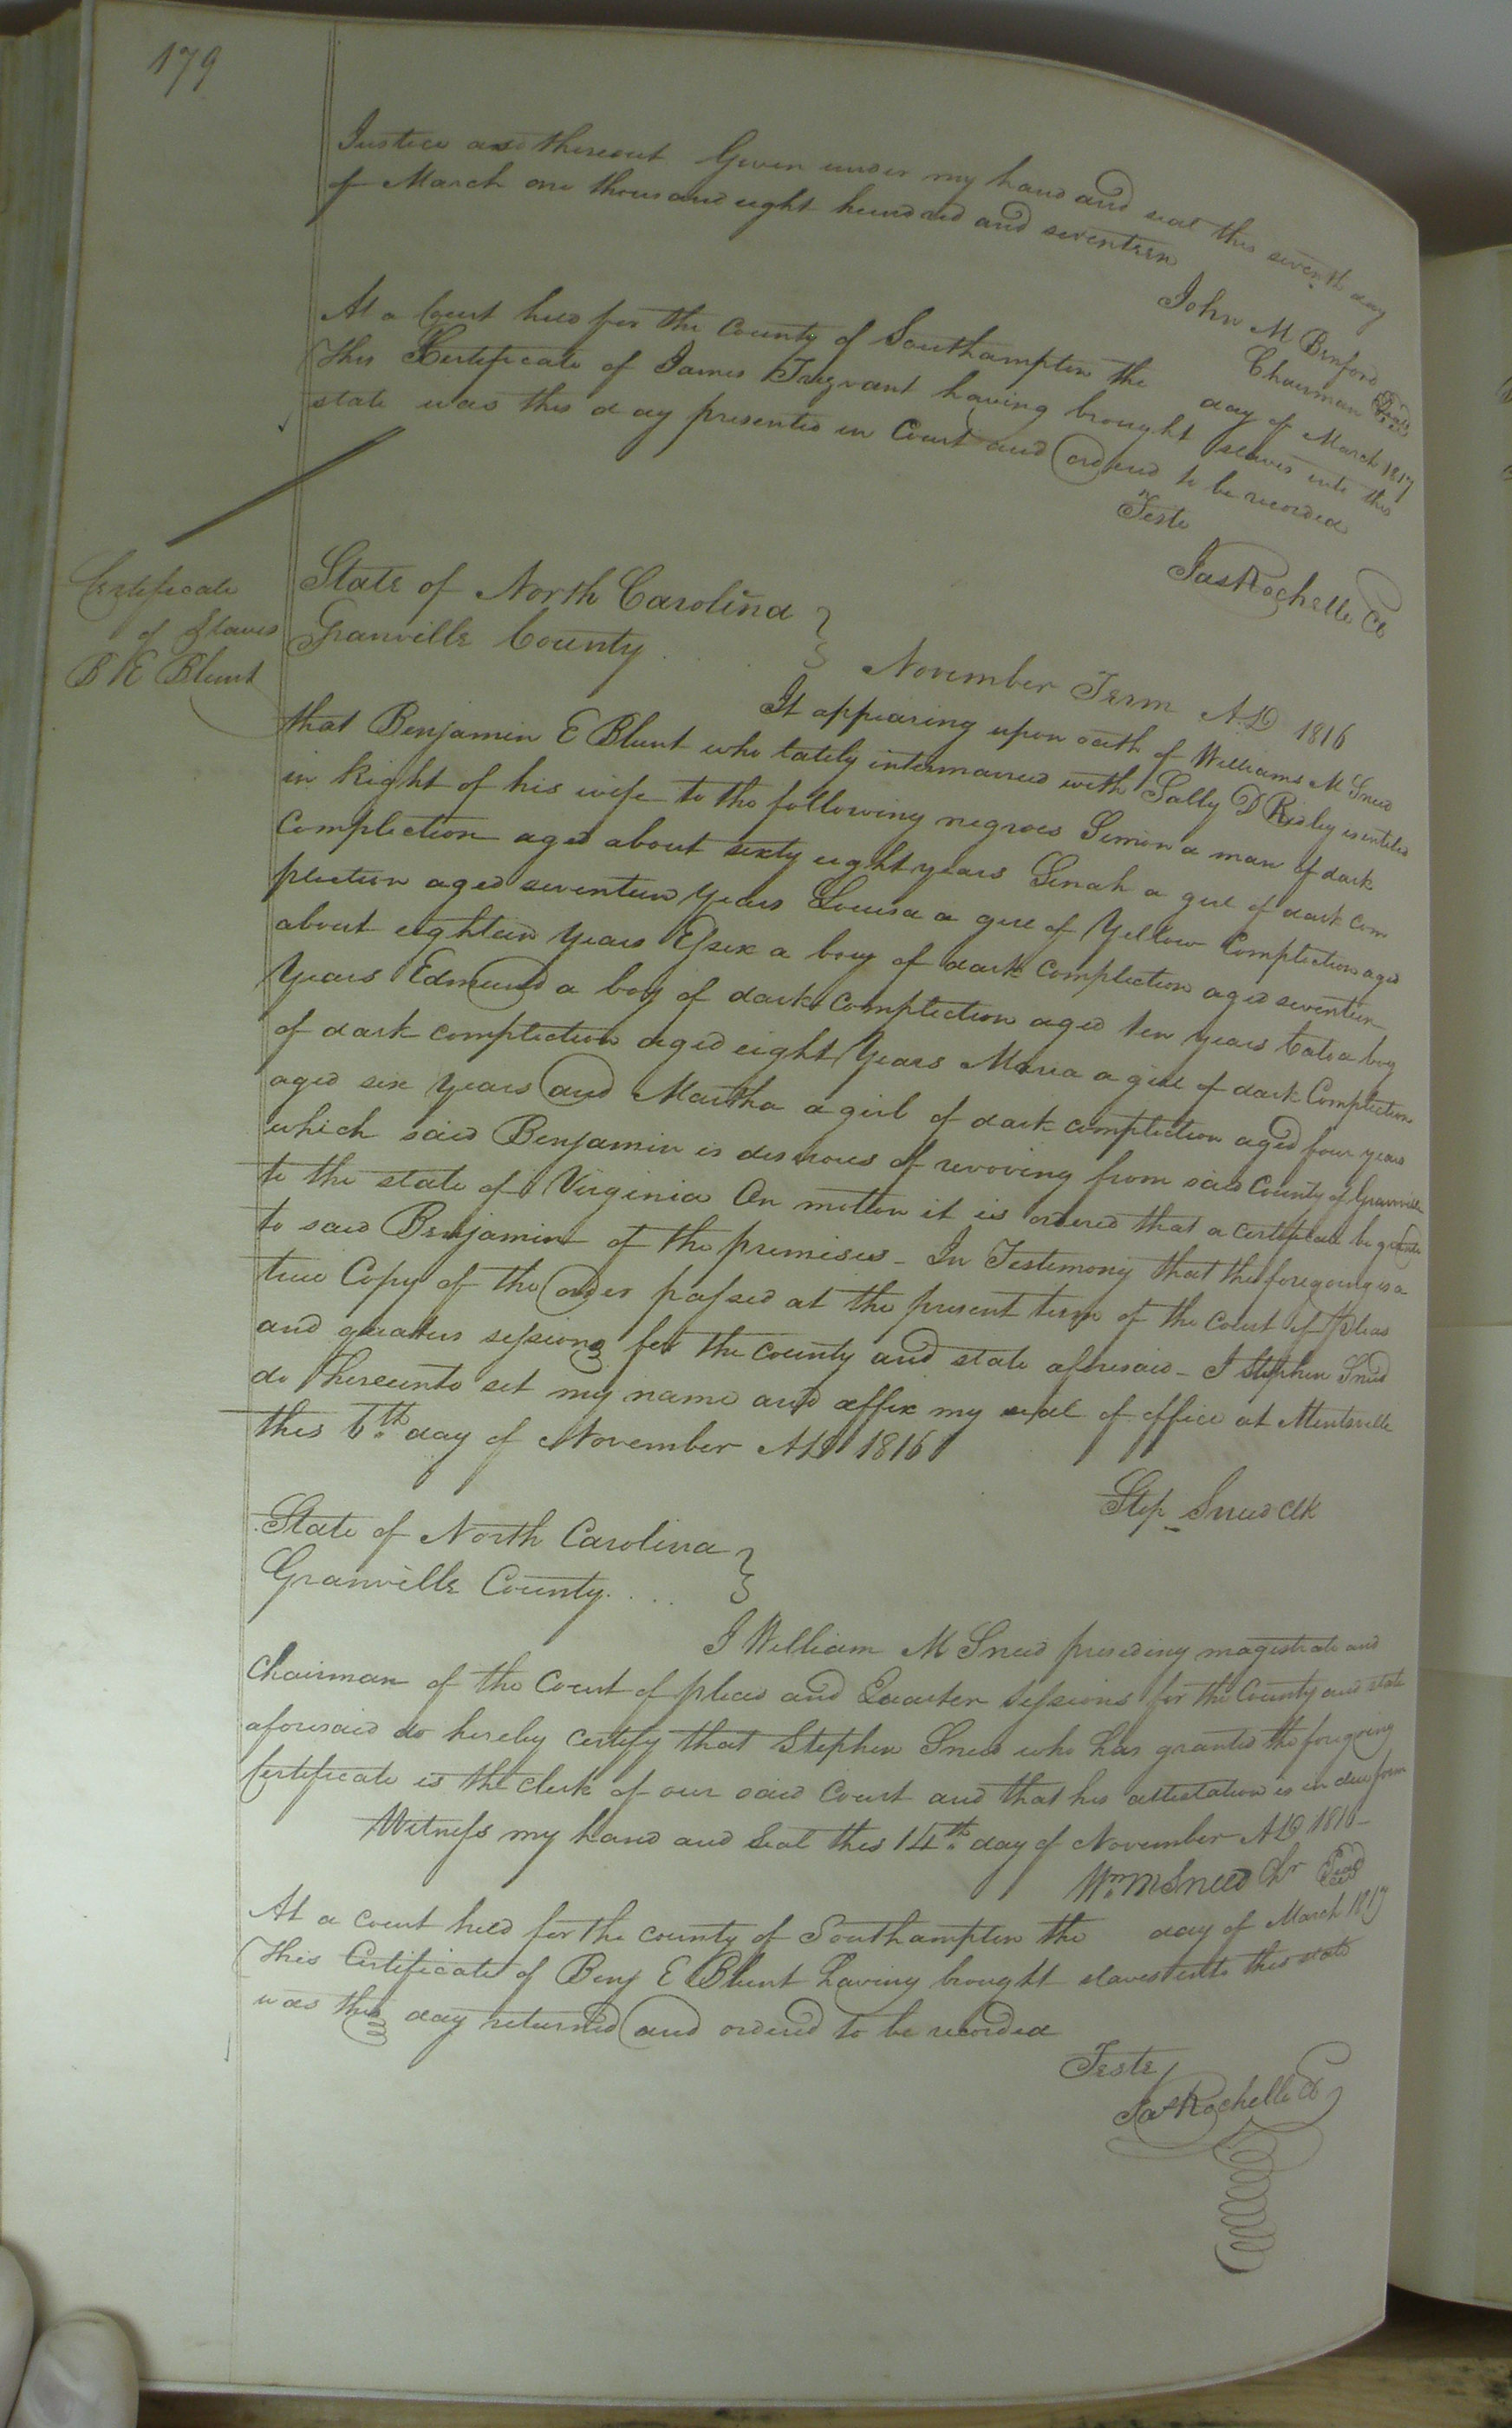 179
Justice and thereout Given under my hand and seal this seventh day
of March one thousand eight hundred and seventeen
John M Binford Seal
Chairman
At a Court held for the County of Southampton the day of March 1817
This Certificate of James Trezvant having brought slaves into this
state was this day presented in Court and ordered to be recorded
Teste
Jas Rochelle Cl
Certificate
of Slaves
B E Blunt
State of North Carolina }
Granville County . . . }
November Term A.D 1816
It appearing upon oath of Williams M Sneed
that Benjamin E Blunt who lately intermarried with Sally D Ridley is entitled
in Right of his wife to the following negroes Simon a man of dark
Complection aged about sixty eight years Senah a girl of dark Com
plection aged seventeen years Louisa a girl of Yellow Complection aged
about eighteen years Essex a boy of dark Complection aged seventeen
Years Edmund a boy of dark Complection aged ten years Cato a boy
of dark complection aged eight Years Maria a girl of dark Complection
aged six Years and Martha a girl of dark complection aged four years
which said Benjamin is desirous of removing from said County of Granville
to the state of Virginia On motion it is ordered that a certificate be granted
to said Benjamin of the premises - In Testimony that the foregoing is a
true Copy of the order passed at the present term of the Court of Pleas
and quarter sessions for the county and state aforesaid - I Stephen Sneed
do hereunto set my name and affix my seal of office at
this 6th day of November AD 1816
Step Sneed Clk
State of North Carolina }
Granville County . . . }
I William M Sneed presiding magistrate and
Chairman of the Court of pleas and Quarter Sessions for the County and state
aforesaid do hereby certify that Stephen Sneed who has granted the foregoing
Certificate is the clerk of our said Court and that his attestation is in due form
Witness my hand and Seal this 14th day of November AD 1816
Wm M Sneed Seal
At a court held for the county of Southampton the day of March 1817
This Certificate of Benj E Blunt having brought slaves into this state
was this day returned and ordered to be recorded
Teste
Jas Rochelle Cl